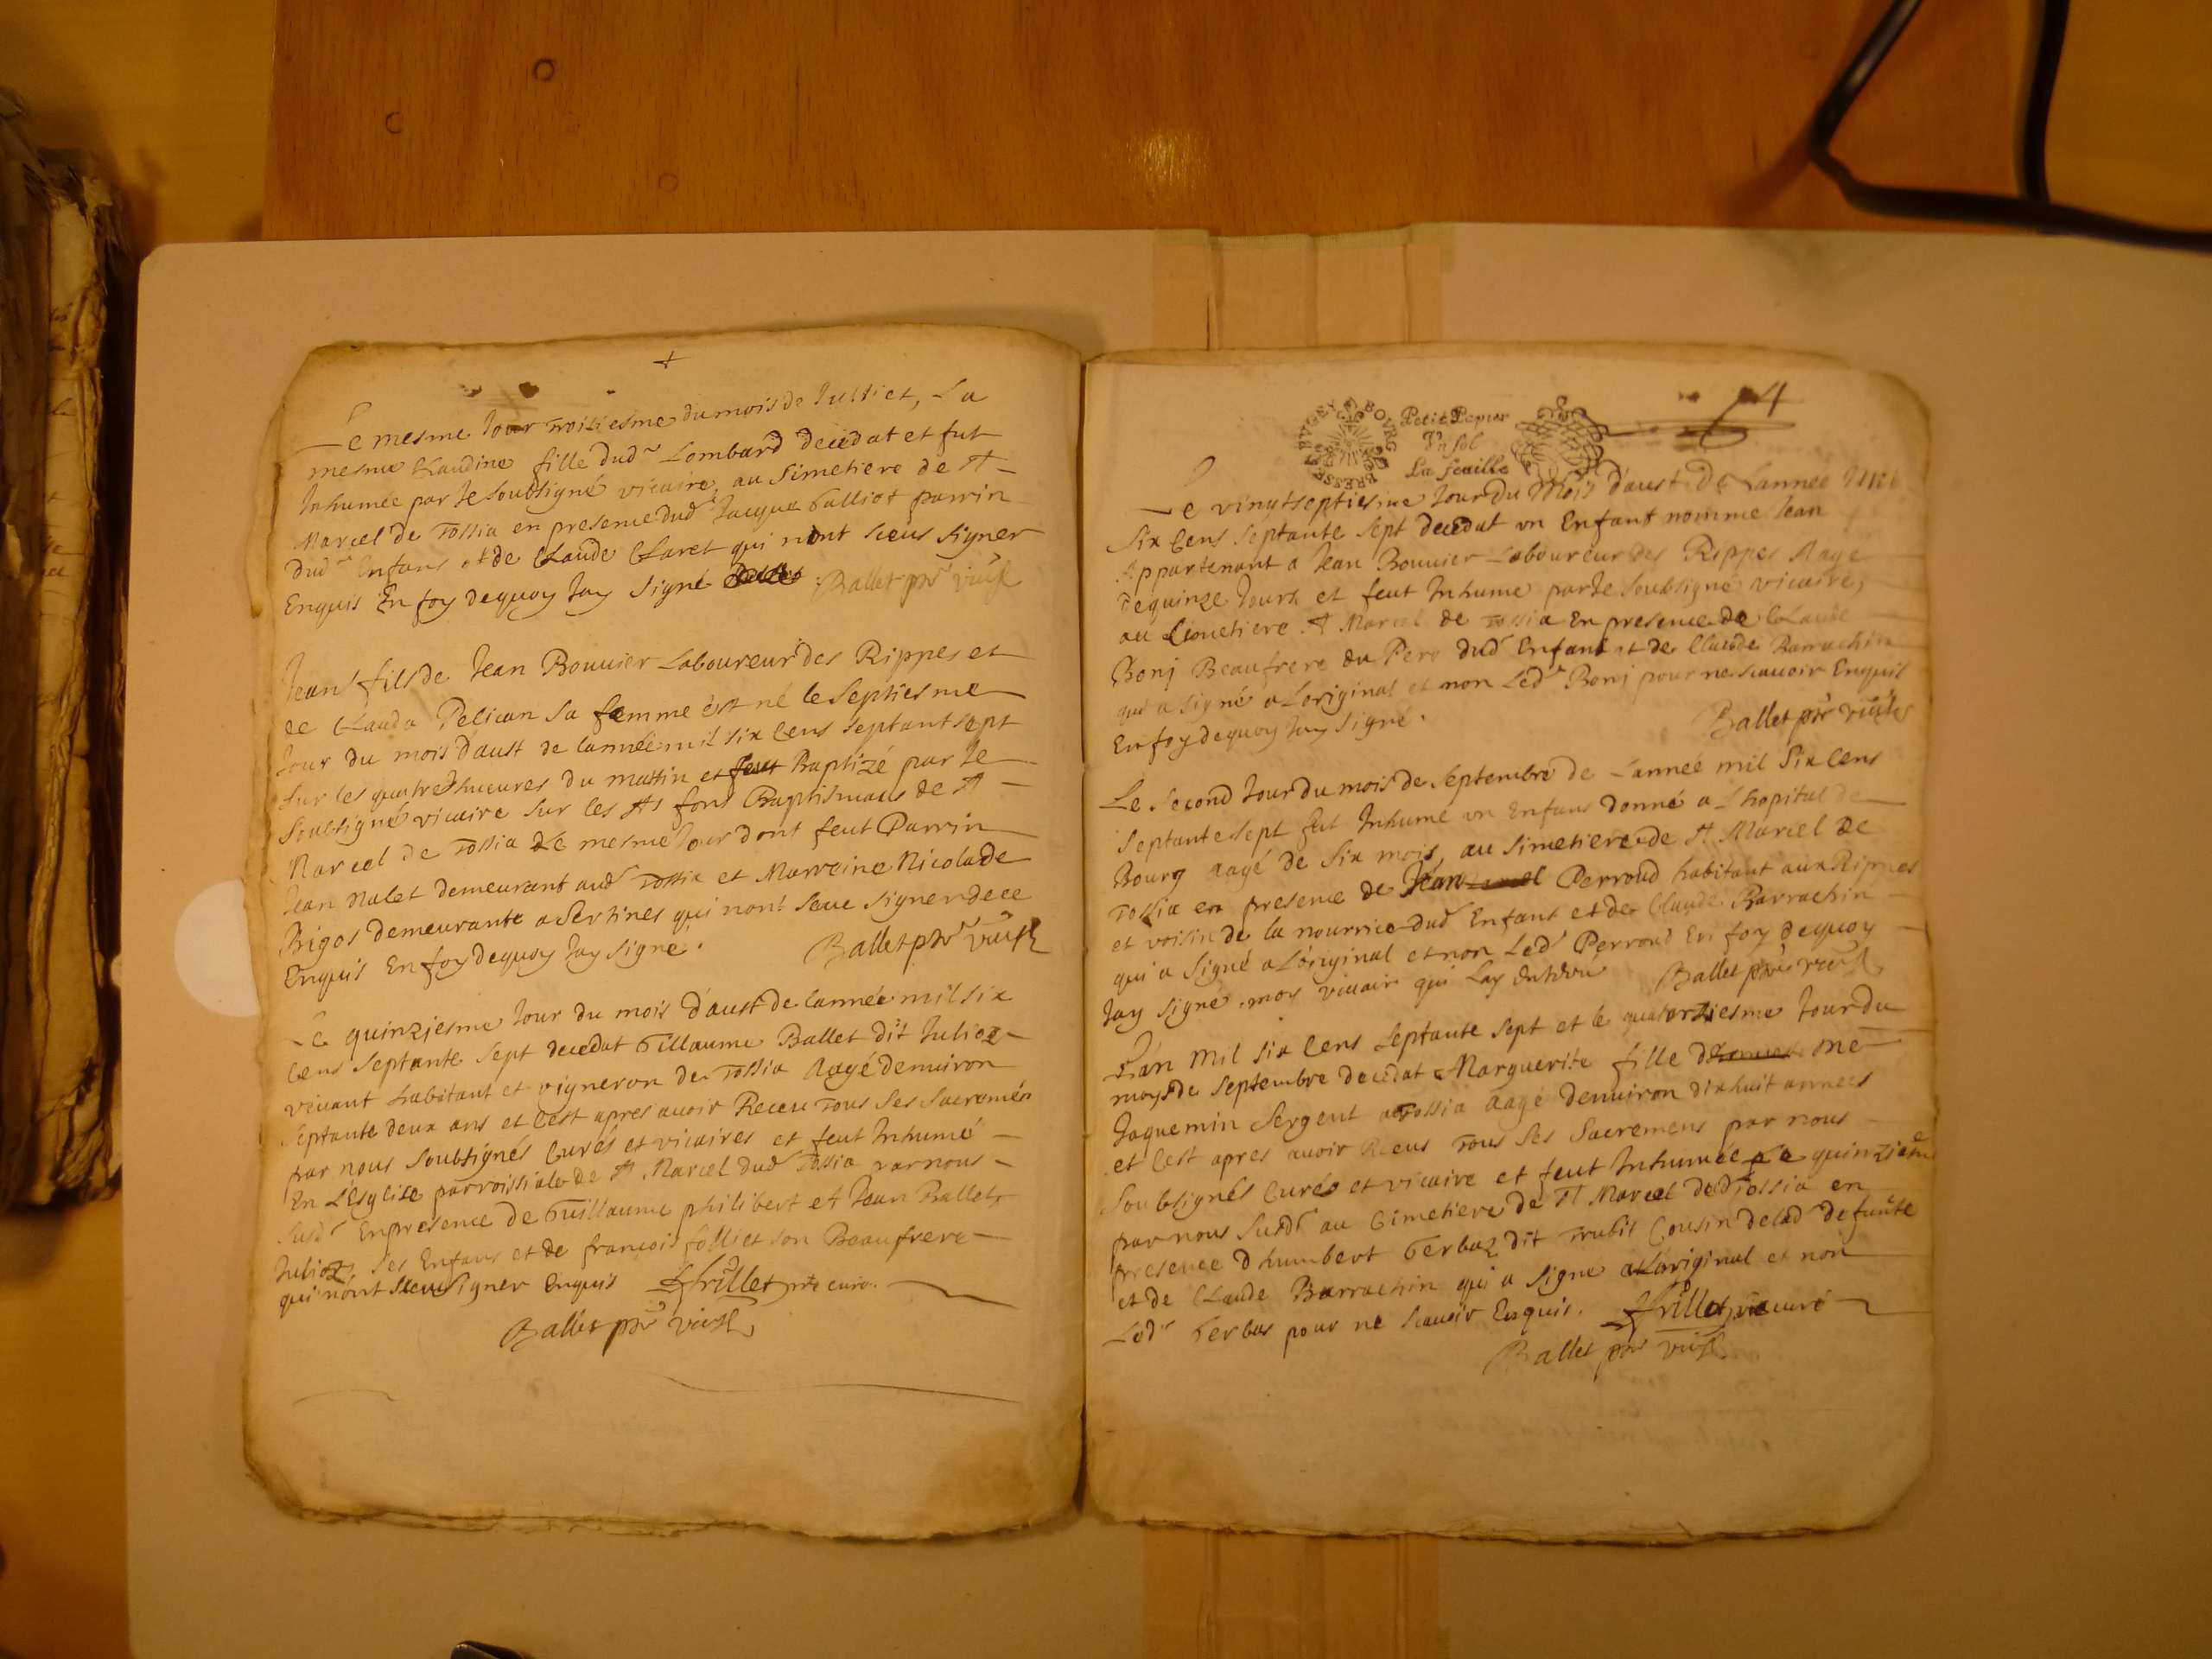 +
Le mesme Jour troisiesme du mois de Julliet, La
mesme Claudine fille dud.r Lombard decedat et fut
Inhumée par Je soubsigné vicaire, au Simetiere de St
Marcel de Tossia en presence dud Jacque Galliot parrin
dud.r Enfans et de Claude Claret qui nont sceus signer
Enquis En foy dequoy Jay signé Ballet pbr vic.re
Jean fils de Jean Bouuier Laboureur des Rippes et
de Clauda Pelican sa femme est né le Septiesme
Jour du mois d'aust de lannée mil six Cens septant sept
sur les quatre heures du mattin et feut Baptizé par Je
soubsigné vicaire sur les Sts fons Baptismaus de St
Marcel de Tossia Le mesme Jour dont feut Parrin
Jean Nalet demeurant aud Tossia et Marreine Nicolade
Brigos demeurante a Sertines qui nont sceu signer de ce
Enquis En foy dequoy Jay signe. Ballet pbr vic.re
Le quinziesme Jour du mois d'aust de lannée mil six
Cens septante sept decedat Guillaume Ballet dit Julioz
viuant habitant et vigneron de Tossia Aagé denuiron
septante deux ans et Cest apres auoir Receu Tous ses Sacremēs
par nous soubsignés Curés et vicaires et feut Inhumé
En L'Esglise parroissiale de St Marcel dud Tossia par nous
susd.r En presence de Guillaume philibert et Jean Ballet
Julioz, ses Enfans et de francois folliet son Beaufrere
qui nont sceu signer Enquis Frillet pbr curé.
Ballet pbr vic.re
4
BVGEY BOVRG BRESSE
Petit Papier
Vn sol
La feuille
Le vingtseptiesme Jour du Mois d'aust De Lannee Mil
six Cens septante sept decedat vn Enfant nomme Jean
Appartenant a Jean Bouuier Laboureur des Rippes Aagé
de quinze Jours et feut Inhume par Je soubsigné vicaire,
au Cimetiere St Marcel de Tossia En presence de Claude
Bonj Beaufrere du Pere dud Enfant et de Claude Barrachin
qui a signé a Loriginal et non Led.r Bonj pour ne scauoir Enquis
En foy dequoy Jay signé. Ballet pbr vic.re
Le second Jour du mois de Septembre de Lanneé mil Six Cens
septante sept fut Inhumé vn Enfans donné a Lhopital de
Bourg aagé de six mois, au simetiere de St Marcel de
Tossia en presence de Jean Perroud habitant aux Rippes
et voisin de la nourrice dud Enfans et de Claude Barrachin
qui a signé a L'original et non Led.r Perroud En foy dequoy
Jay signé moy vicaire qui Lay Ballet pbr vic.re
L'an mil six Cens septante sept et le quatorziesme Jour du
moys de Septembre decedat Marguerite fille de me
Jaquemin Sergent a Tossia Aagé denuiron dixhuit annees
et Cest apres auoir Receus Tous ses Sacremens par nous
soubsignés Curés et vicaire et feut Inhumée Le quinzieme
par nous susd.t au Cimetiere de St Marcel dud Tossia en
presence d'humbert Gerbaz dit Trubit Cousin de lad.r defunte
et de Claude Barrachin qui a signe a Loriginal et non
Led.r Gerbas pour ne scauoir Enquis. Frillet pbr curé
Ballet pbr vic.re